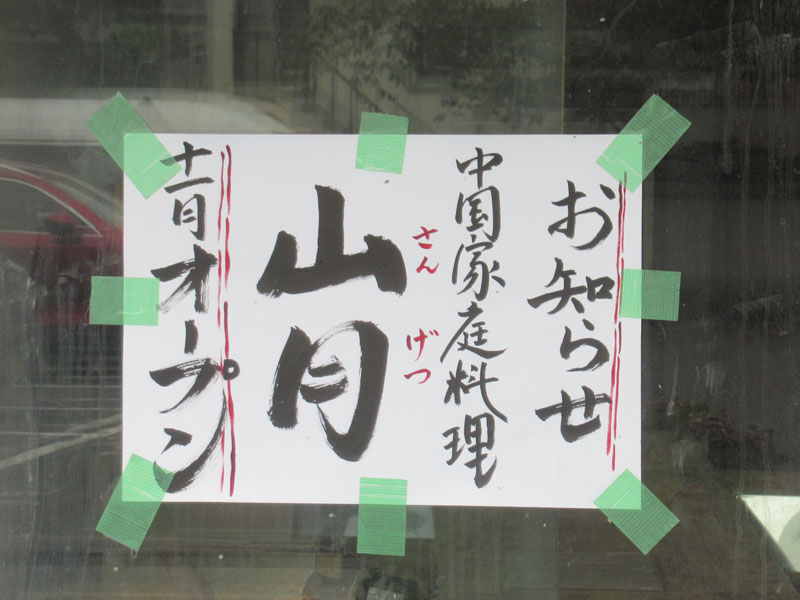 お知らせ
中国家庭料理
さんげつ
山月
十一月オープン